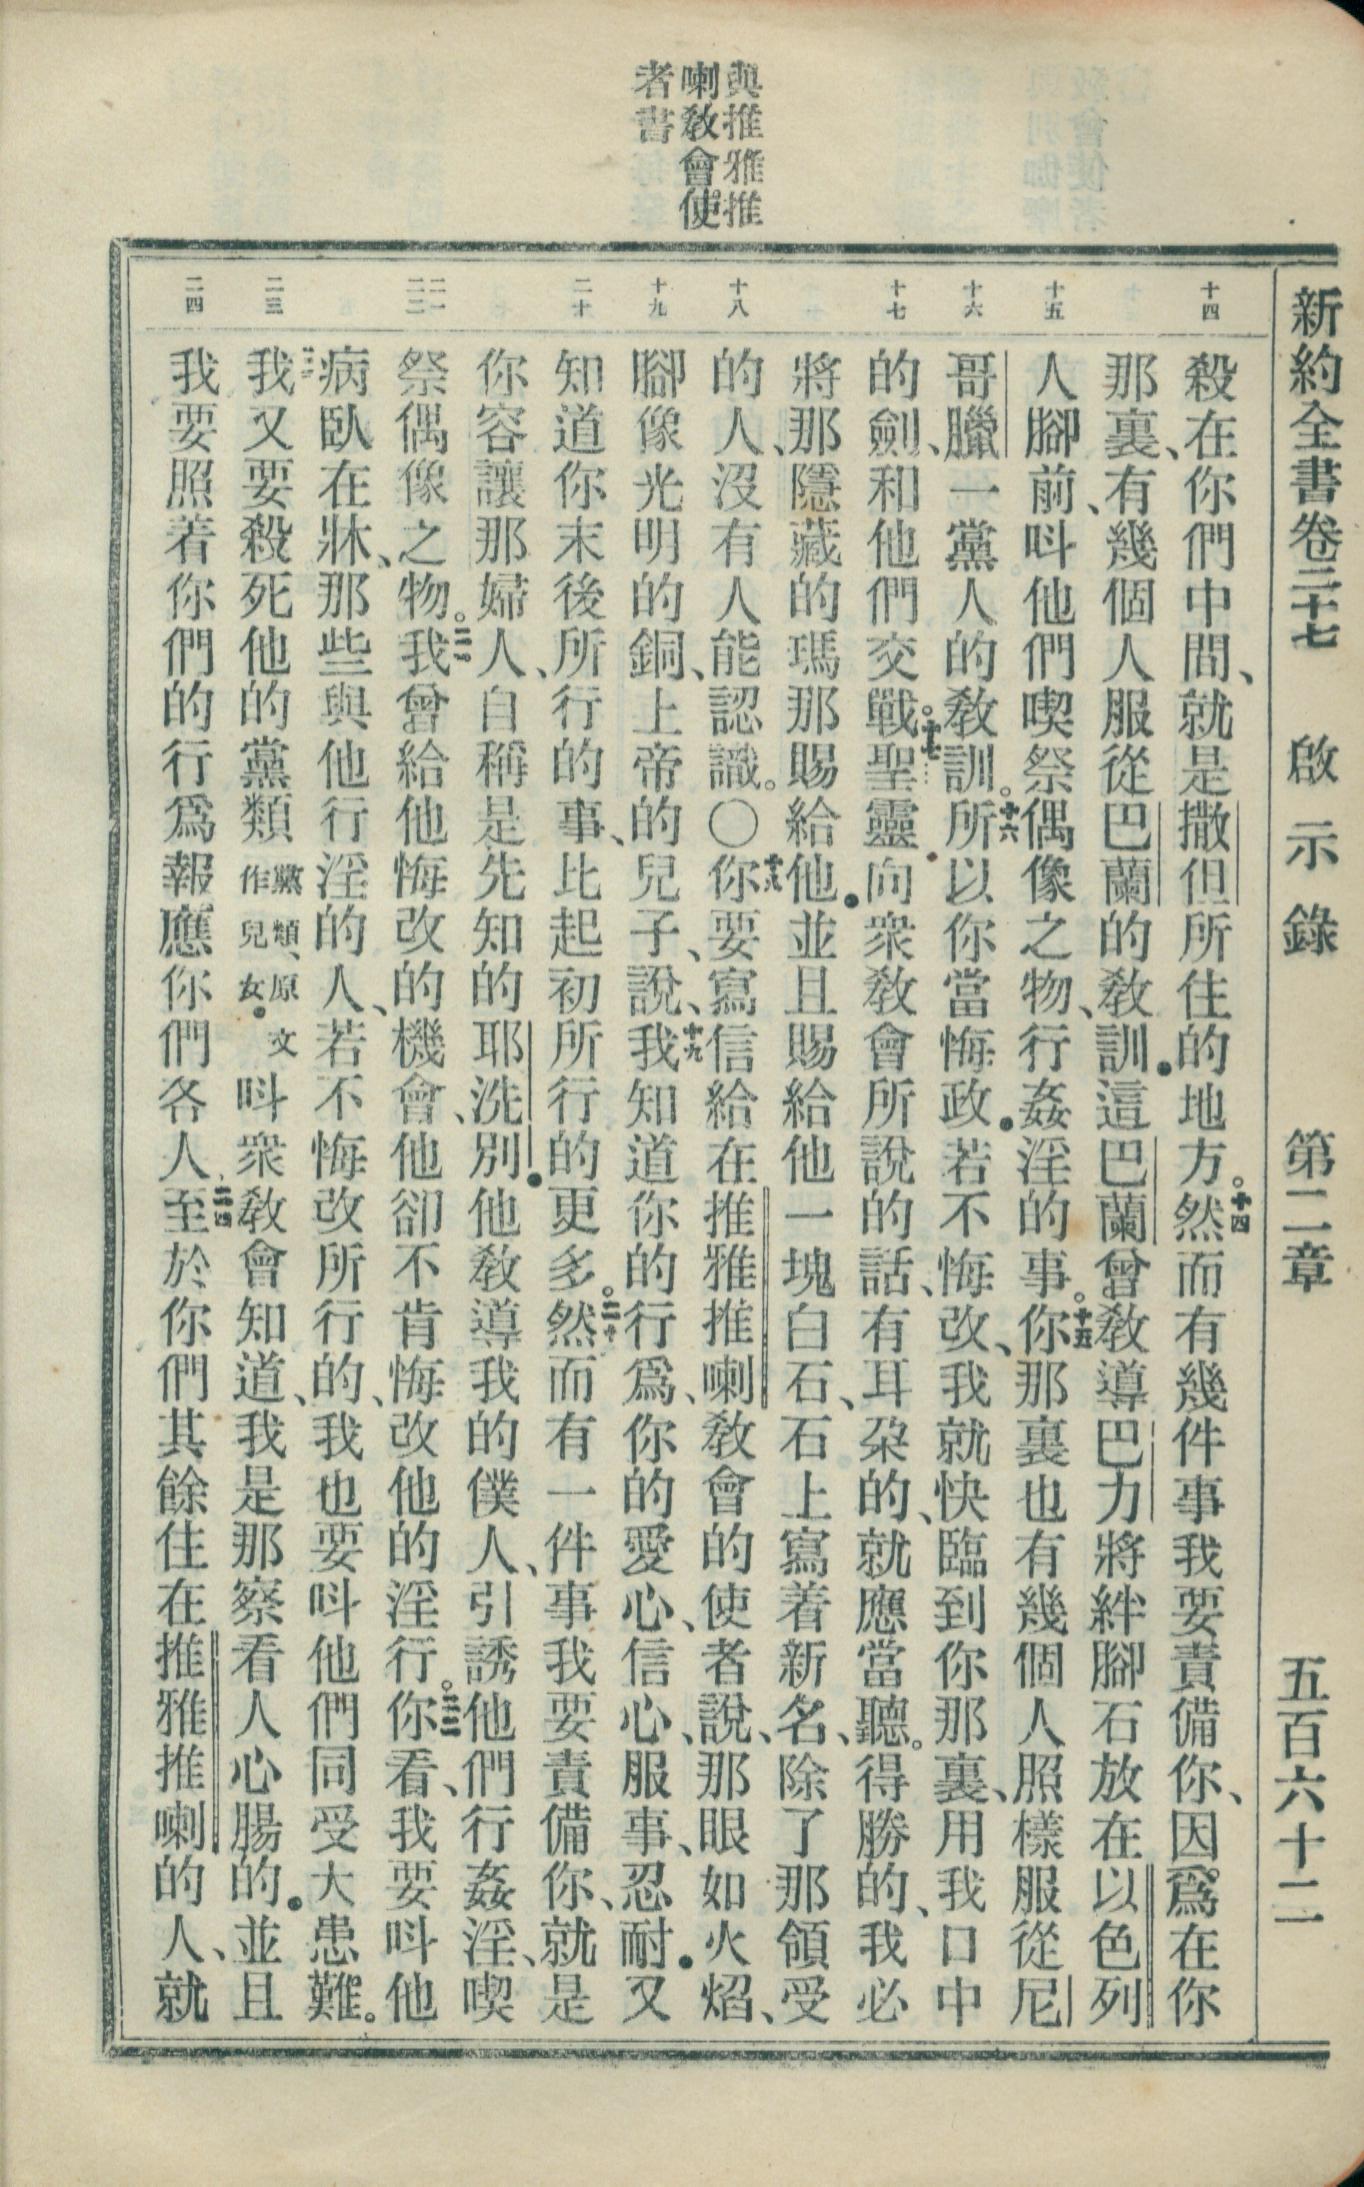 新約全書卷二十七　啟示錄　第二章　五百六十二
與推雅推
喇敎會使
者書
十四
十五
十六
十七
十八
十九
二十
二一
二二
二三
二四
殺在你們中間、就是撒但所住的地方。十四然而有幾件事我要責備你、因爲在你
那裏、有幾個人服從巴蘭的敎訓．這巴蘭曾敎導巴力將絆腳石放在以色列
人腳前、呌他們喫祭偶像之物、行姦淫的事。十五你那裏也有幾個人照樣服從尼
哥臘一黨人的敎訓。十六所以你當悔政．若不悔改、我就快臨到你那裏、用我口中
的劍、和他們交戰。十七聖靈向衆敎會所說的話、有耳朶的、就應當聽。得勝的、我必
將那隱藏的瑪那賜給他．並且賜給他一塊白石、石上寫着新名、除了那領受
的人、沒有人能認識。〇十八你要寫信給在推雅推喇敎會的使者說、那眼如火焰、
腳像光明的銅、上帝的兒子、說、十九我知道你的行爲、你的愛心、信心、服事、忍耐．又
知道你末後所行的事、比起初所行的更多。二十然而有一件事我要責備你、就是
你容讓那婦人、自稱是先知的耶洗別．他敎導我的僕人、引誘他們行姦淫、喫
祭偶像之物。二一我曾給他悔改的機會、他卻不肯悔改他的淫行。二二你看、我要呌他
病臥在牀、那些與他行淫的人、若不悔改所行的、我也要呌他們同受大患難。
二三我又要殺死他的黨類黨類、原文作兒女．呌衆敎會知道、我是那察看人心腸的．並且
我要照着你們的行爲報應你們各人、二四至於你們其餘住在推雅推喇的人、就